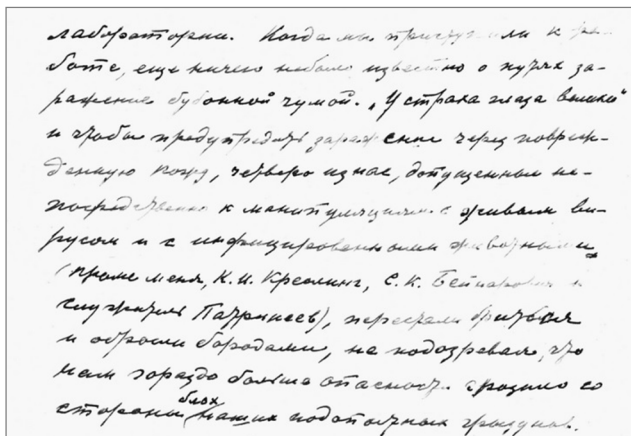 лаборатории. Когда мы приступили к ра-
боте, еще ничего небыло известно о путях за-
ражения бубонной чумой. „У страха глаза велики"
и чтобы предупредить заражение через повреж-
денную кожу, четверо из нас, допущенных не-
посредственно к манипуляциям с живым ви-
русом и с инфицированными животными
(кроме меня, К. И. Креслинг, С. К. и
служитель), перестали бриться
и обросли бородами, не подозревая, что
нам гораздо больше опасность грозила со
стороны блох наших подопытных грызунов.